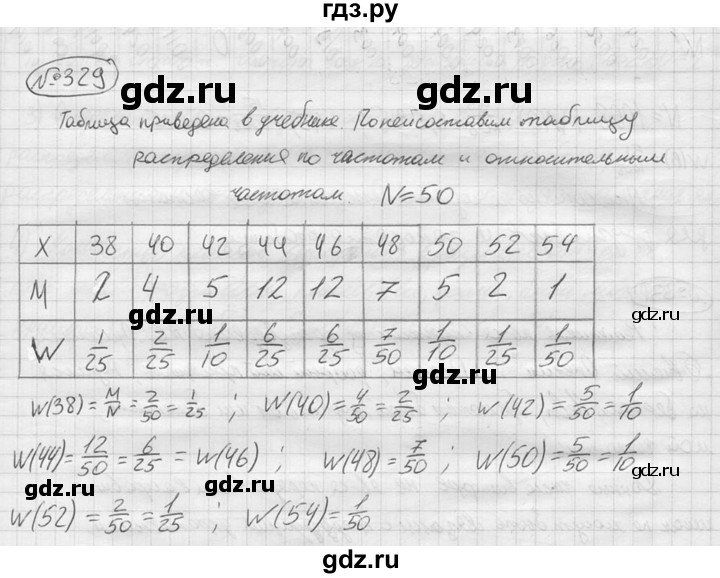 гдз.ру
№329
gdz.ru
gdz.ru
Таблица приведена в учебнике. По ней составим таблицу
распределения по частотам и относительным
частотам. N=50
gdz.ru
gdz.ru
X 38 40 42 44 46 48 50 52 54
M 2 4 5 12 12 7 5 2 1
gdz.ru
gdz.ru
W 1/25 2/25 1/10 6/25 6/25 7/50 1/10 1/25 1/50
W(38)=M/N=2/50=1/25 ; W(40)=4/50=2/25 ; W(42)=5/50=1/10
gdz.ru
W(44)=12/50=6/25=W(46) ; W(48)=7/50 ; W(50)=5/50=1/10
gdz.ru
gdz.ru
W(52)=2/50=1/25 ; W(54)=1/50
gdz.ru